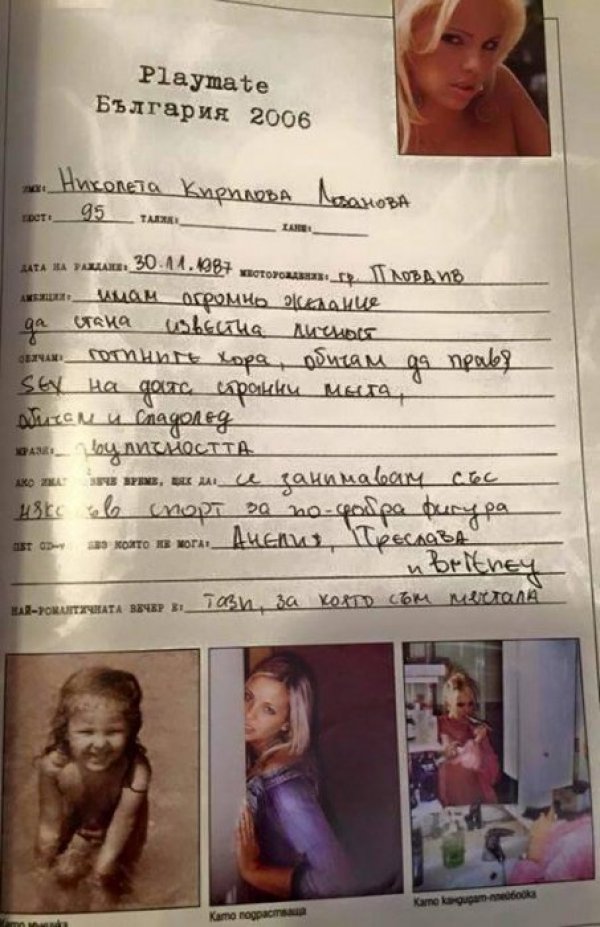 Playmate
България 2006
ИМЕ: Николета Кирилова Лозанова
БЮСТ: 95 ТАЛИЯ: ХАНШ:
ДАТА НА РАЖДАНЕ: 30.11.1987 МЕСТОРОЖДЕНИЕ: гр. Пловдив
АМБИЦИИ: имам огромно желание
да стана известна личност
ОБИЧАМ: готините хора, обичам да правя
SEX на доста странни места,
обичам и сладолед
МРАЗЯ: двуличността
АКО ИМАХ ПОВЕЧЕ ВРЕМЕ, ЩЯХ ДА: се занимавам със
някакъв спорт за по-добра фигура
БЕЗ КОЯТО НЕ МОГА: Анелия, Преслава
и Britney
НАЙ-РОМАНТИЧНАТА ВЕЧЕР Е: тази, за която съм мечтала
Като мъничка
Като подрастваща
Като кандидат-плейбойка